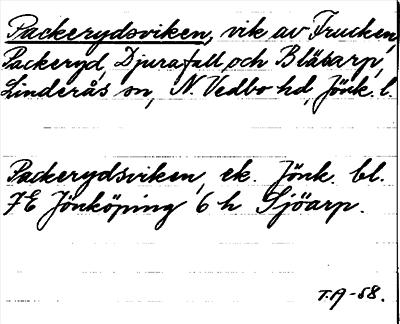 Packerydsviken, vik av Frucken,
Packeryd, Djurafall och Blåsarp,
Linderås sn, N. Vedbo hd, Jönk. l.
Packerydsviken, ek. Jönk. bl.
7E Jönköping 6 h Sjöarp.
T.A-58.